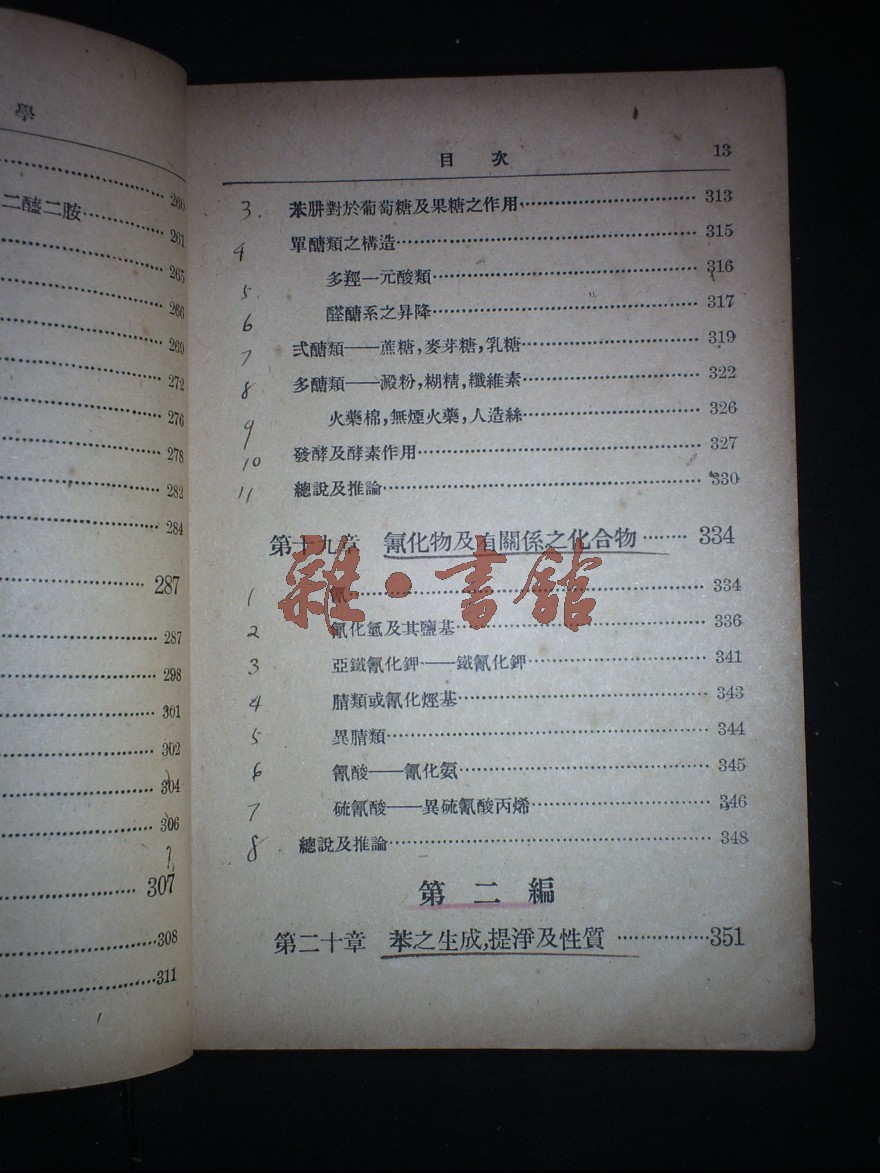 學
260
二醯二胺 261
265
266
269
272
276
278
282
284
287
287
298
301
302
304
306
307
308
311
目 次 13
3. 苯肼對於葡萄糖及果糖之作用 313
4 單醣類之構造 315
5 多羥一元酸類 316
6 醛醣系之昇降 317
7 弍醣類——蔗糖,麥芽糖,乳糖 319
8 多醣類——澱粉,糊精,纖維素 322
9 火藥棉,無煙火藥,人造絲 326
10 發酵及酵素作用 327
11 總說及推論 330
第十九章 氰化物及有關係之化合物 334
1 氰 334
2 氰化氫及其鹽基 336
3 亞鐵氰化鉀——鐵氰化鉀 341
4 腈類或氰化烴基 343
5 異腈類 344
6 氰酸——氰化氨 345
7 硫氰酸——異硫氰酸丙烯 346
8 總說及推論 348
第二編
第二十章 苯之生成,提淨及性質 351
雜·書館